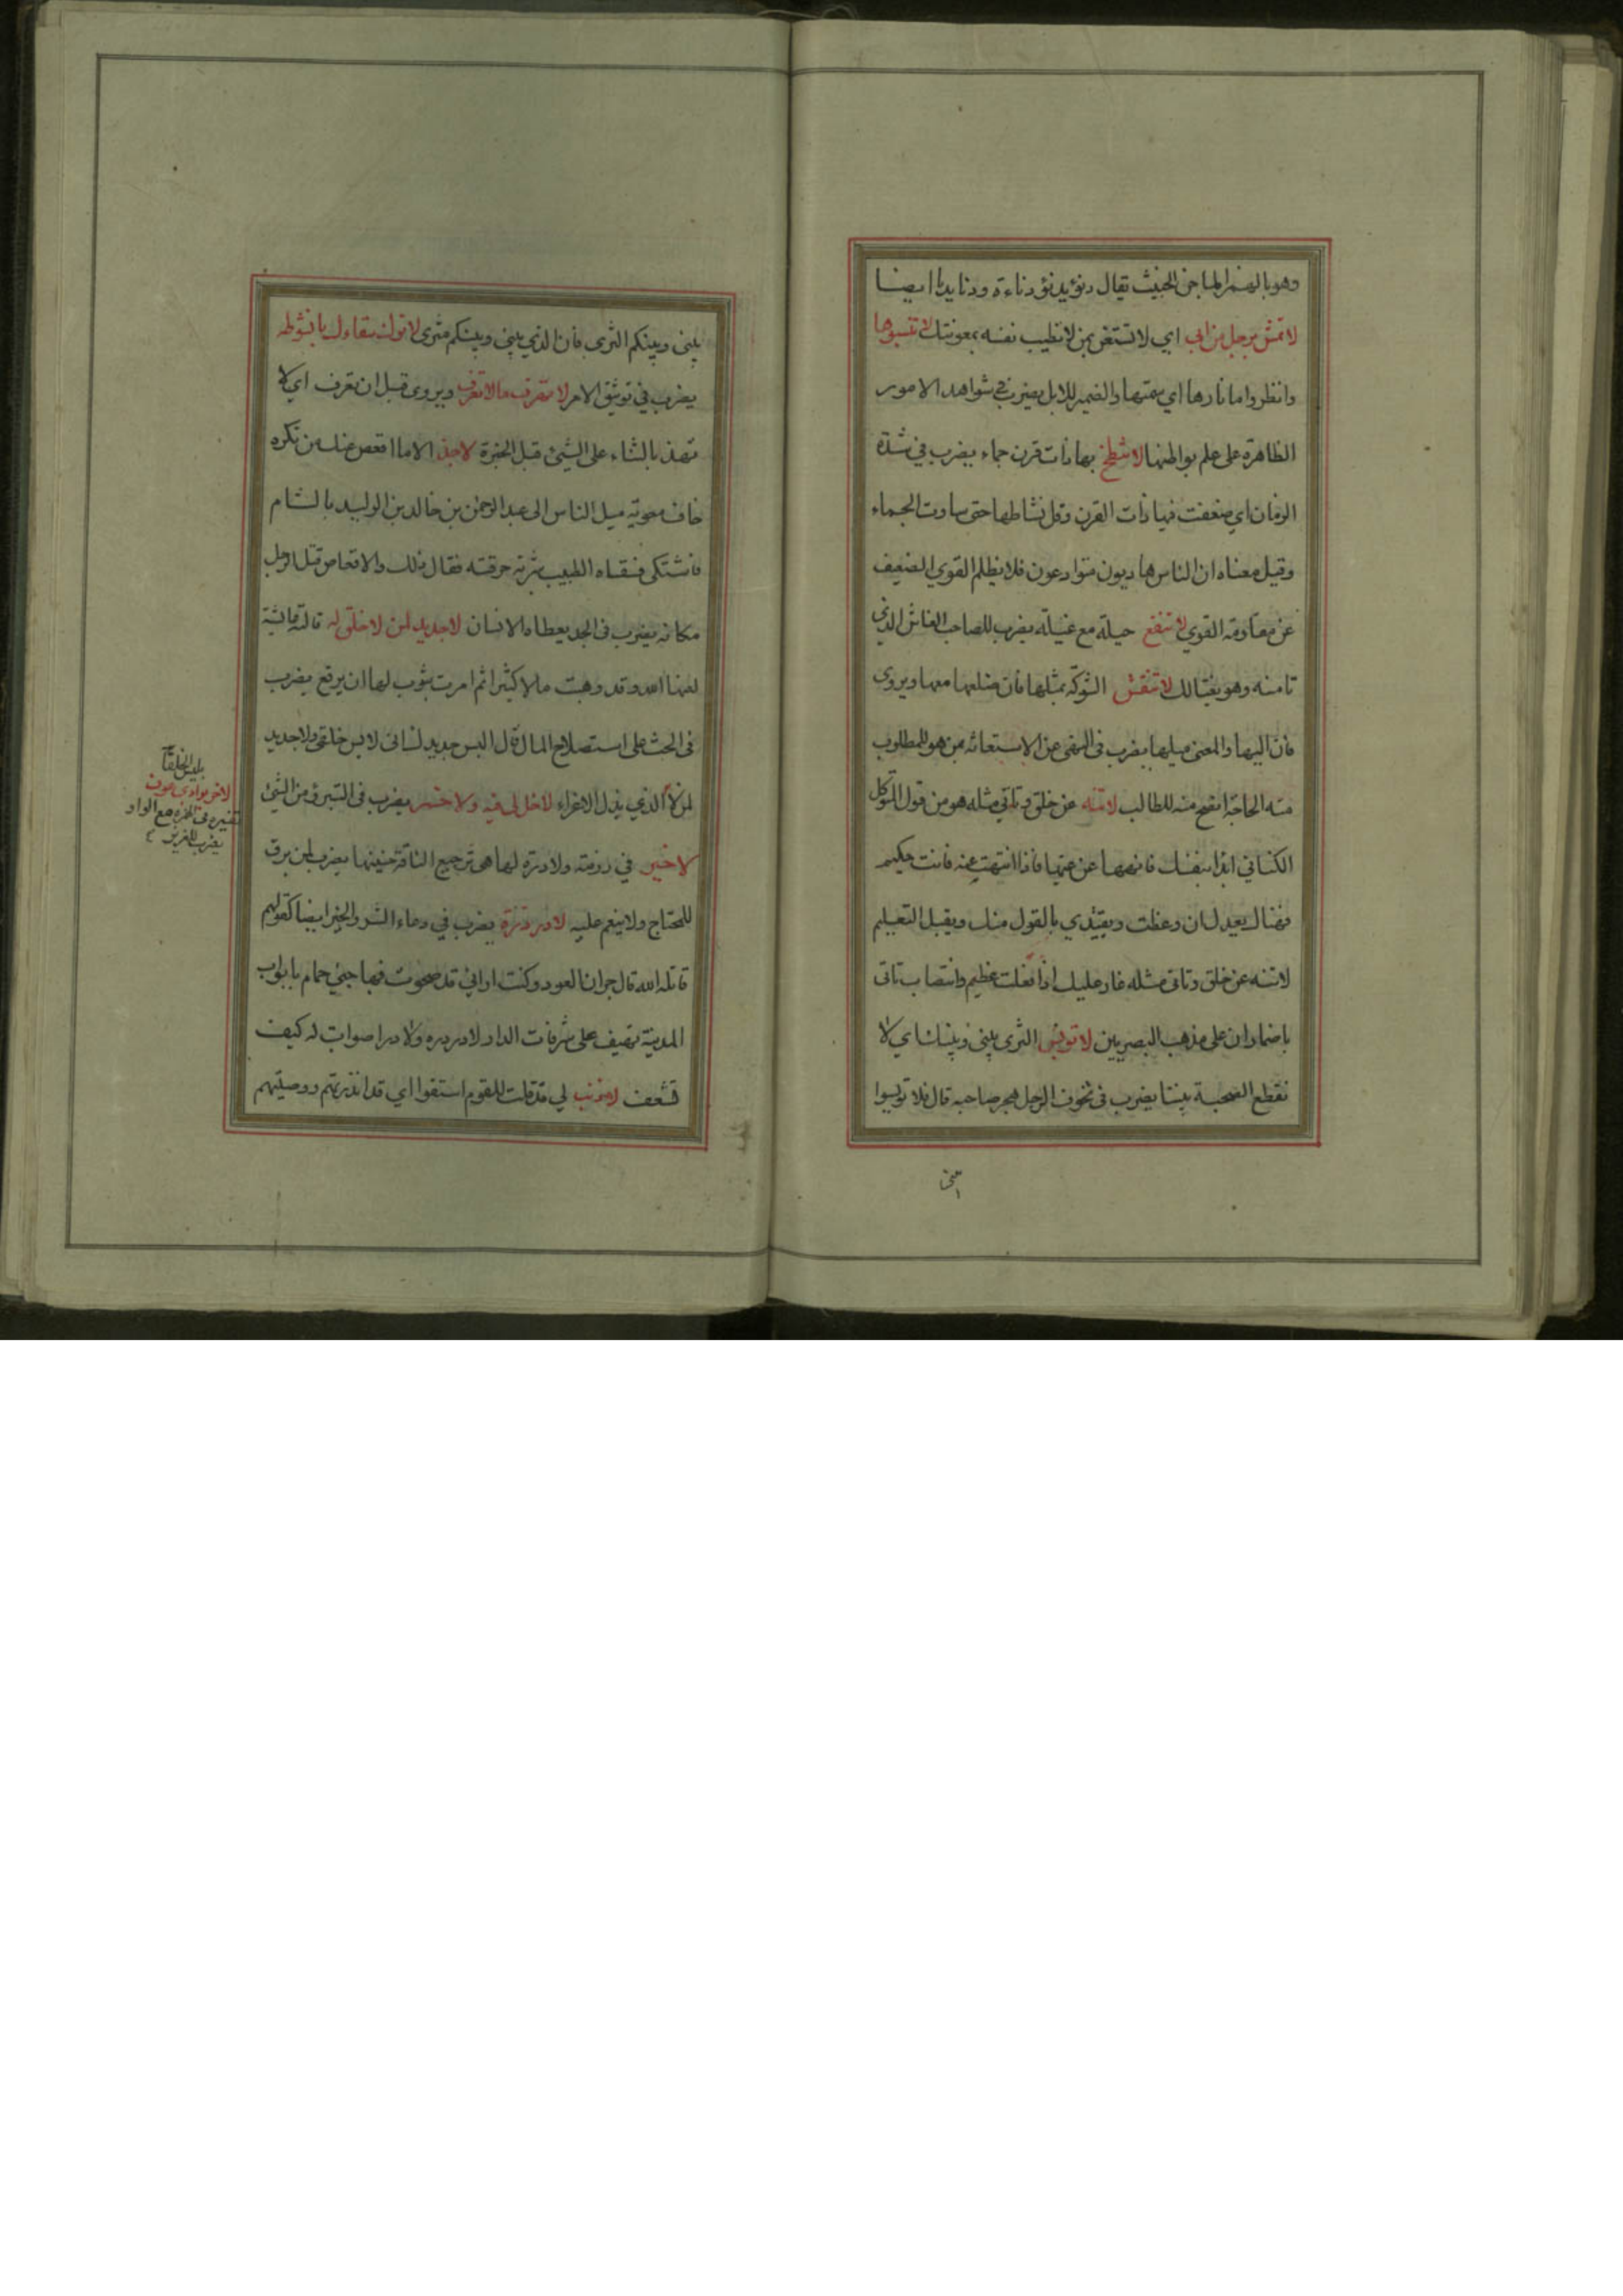 وهو بالهمز الماجن الخبيث يقال دنؤ يدنؤ دناءة ودنا يدنا ايضا
لا تمش برجل من ابى اي لا تستعن بمن لا تطيب نفسه بمعونتك لا تنسبوها
وانظروا ما نارها اي سمتها والضمير للابل يضرب في شواهد الامور
الظاهرة على علم بواطنها لا تنطح بها ذات قرن جماء يضرب في شدة
الزمان اي ضعفت فيها ذات القرن وقل نشاطها حتى ساوت الجماء
وقيل معناه ان الناس هاديون متوادعون فلا يظلم القوي الضعيف
عن مقاومة القوي لا تنفع حيلة مع غيلة يضرب للصاحب الغاش الذي
تامنه وهو يغتالك لا تنقش الشوكة بمثلها فان ضلعها معها ويروى
فان اليها والمعنى ميلها يضرب في النهى عن الاستعانة بمن هو للمطلوب
منه الحاجة انصح منه للطالب لا تنه عن خلق وتاتي مثله هو من قول المتوكل
الكناني ابدا بنفسك فانهها عن غيها فاذا انتهت عنه فانت حكيم
فهناك يعدل ان وعظت ويقتدي بالقول منك ويقبل التعليم
لا تنه عن خلق وتاتى مثله عار عليك اذا فعلت عظيم وانتصاب تاتى
باضمار ان على مذهب البصريين لا توبس الثرى بيني وبينك اي لا
تقطع الصحبة بيننا يضرب فى تخوف الرجل هجر صاحبه قال فلا توبسوا
بيني وبينكم الثرى فان الذي بيني وبينكم مثرى لا تولن سقاءك بانشوطة
يضرب في توثيق الامر لا تهرف بما لا تعرف ويروى قبل ان تعرف اي لا
تهذ بالثناء على الشيئ قبل الخبرة لا جد الا ما اقعص عنك من تكره
خاف معوية ميل الناس الى عبد الرحمن بن خالد بن الوليد بالشام
فاشتكى فسقاه الطبيب شربة حرقته فقال ذلك والاقعاص قتل الرجل
مكانه يضرب فى الجد يعطاه الانسان لا جديد لمن لا خلق له قالته عائشة
لعنها الله وقد وهبت مالا كثيرا ثم امرت بثوب لها ان يرقع يضرب
فى الحث على استصلاح المال قال البس جديدك انى لابس خلقى ولا جديد
لمن لا الذي يذل الاغراء لا خل لى فيه ولا خمر يضرب فى التبرؤ من الشيئ
لا خير في رزمة ولا درة لها هى ترجيع الناقة حنينها يضرب لمن يرق
للمحتاج ولا ينعم عليه لا در دره يضرب في دعاء الشر والخير ايضا كقولهم
قاتله الله قال جران العود وكنت اراني قد صحوت فهاجني حمام بابواب
المدينة تهتف على شرفات الدار لا در دره ولا در اصوات له كيف
تشعف لا ذنب لي قد قلت للقوم استقوا اي قد انذرتهم ووصيتهم
يلبس الخلقا
مع الواو
تنى